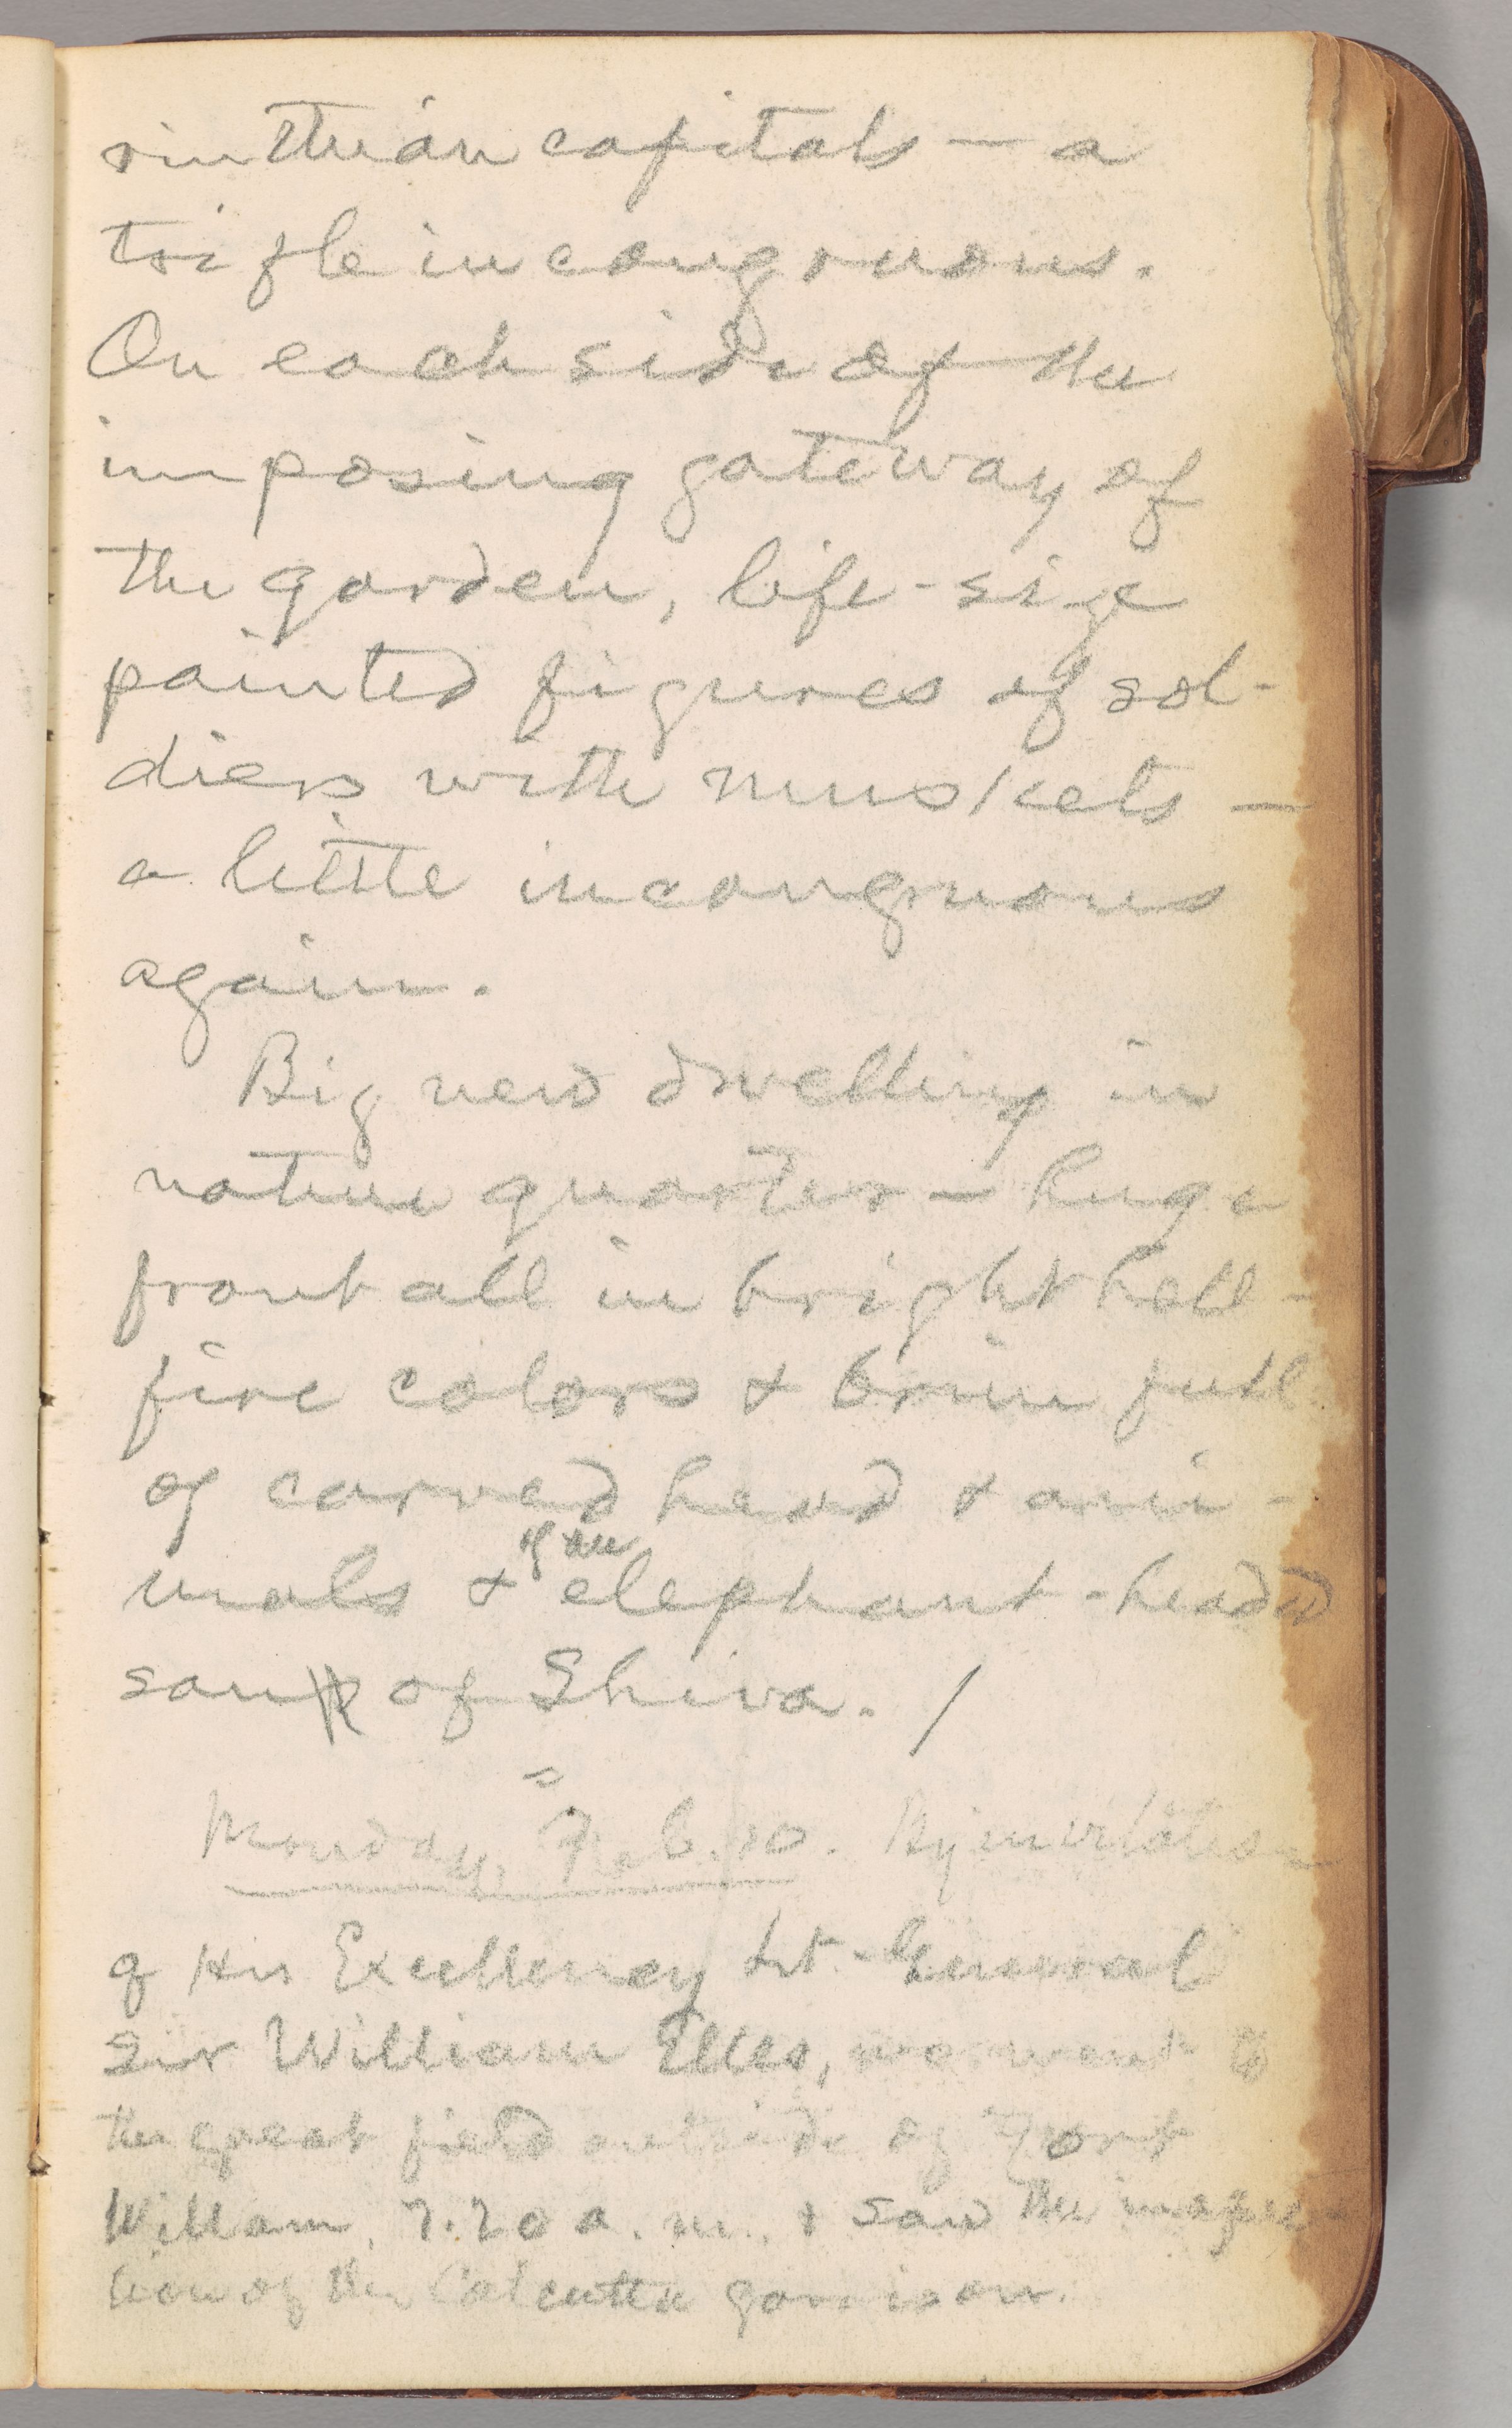 rinthian capitals — a
trifle incongruous.
On each side of the
imposing gateway of
the garden, life-size
painted figures of sol-
diers with muskets —
a little incongruous
again.
Big new dwelling in
native quarter — huge
front all in bright hell-
fire colors & brim full
of carved head & ani-
of an
mals & elephant-headed
son of Shiva. /
=
Monday, Feb. 10. By invitation
of His Excellency Lt.-General
Sir William Elles, we went to
the great field outside of Fort
William, 7.20 a.m., & saw the inspec-
tion of the Calcutta garrison.